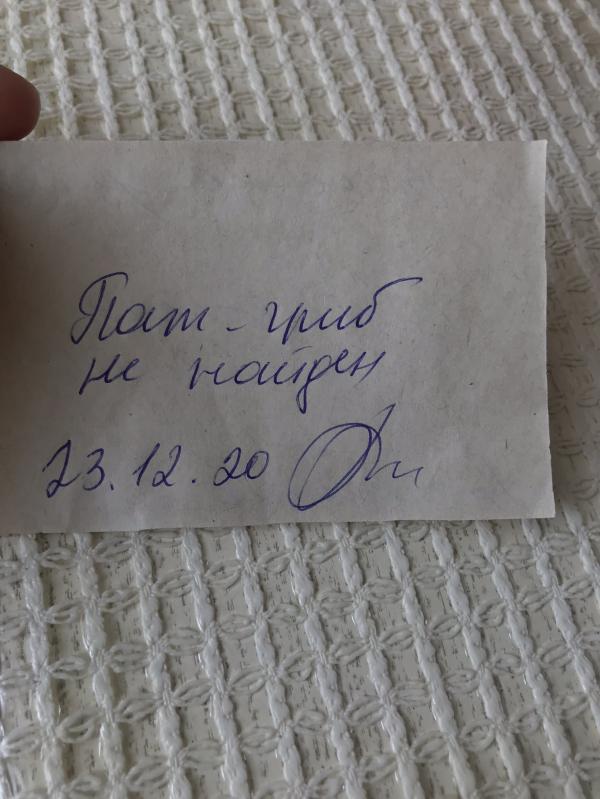 Пат - гриб
не найден
23.12.20